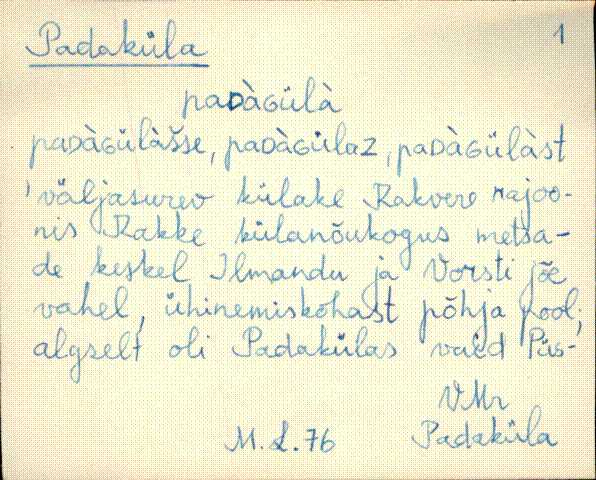 Padaküla 1
paᴅàɢülà
paᴅàɢülàšse, paᴅàɢülaz, paᴅàɢülàst
'väljasurev külake Rakvere rajoo-
nis Rakke külanõukogus metsa-
de keskel Ilmandu ja Vorsti jõe
vahel, ühinemiskohast põhja pool;
algselt oli Padakülas vaid Püs-
VMr
M. L. 76 Padaküla